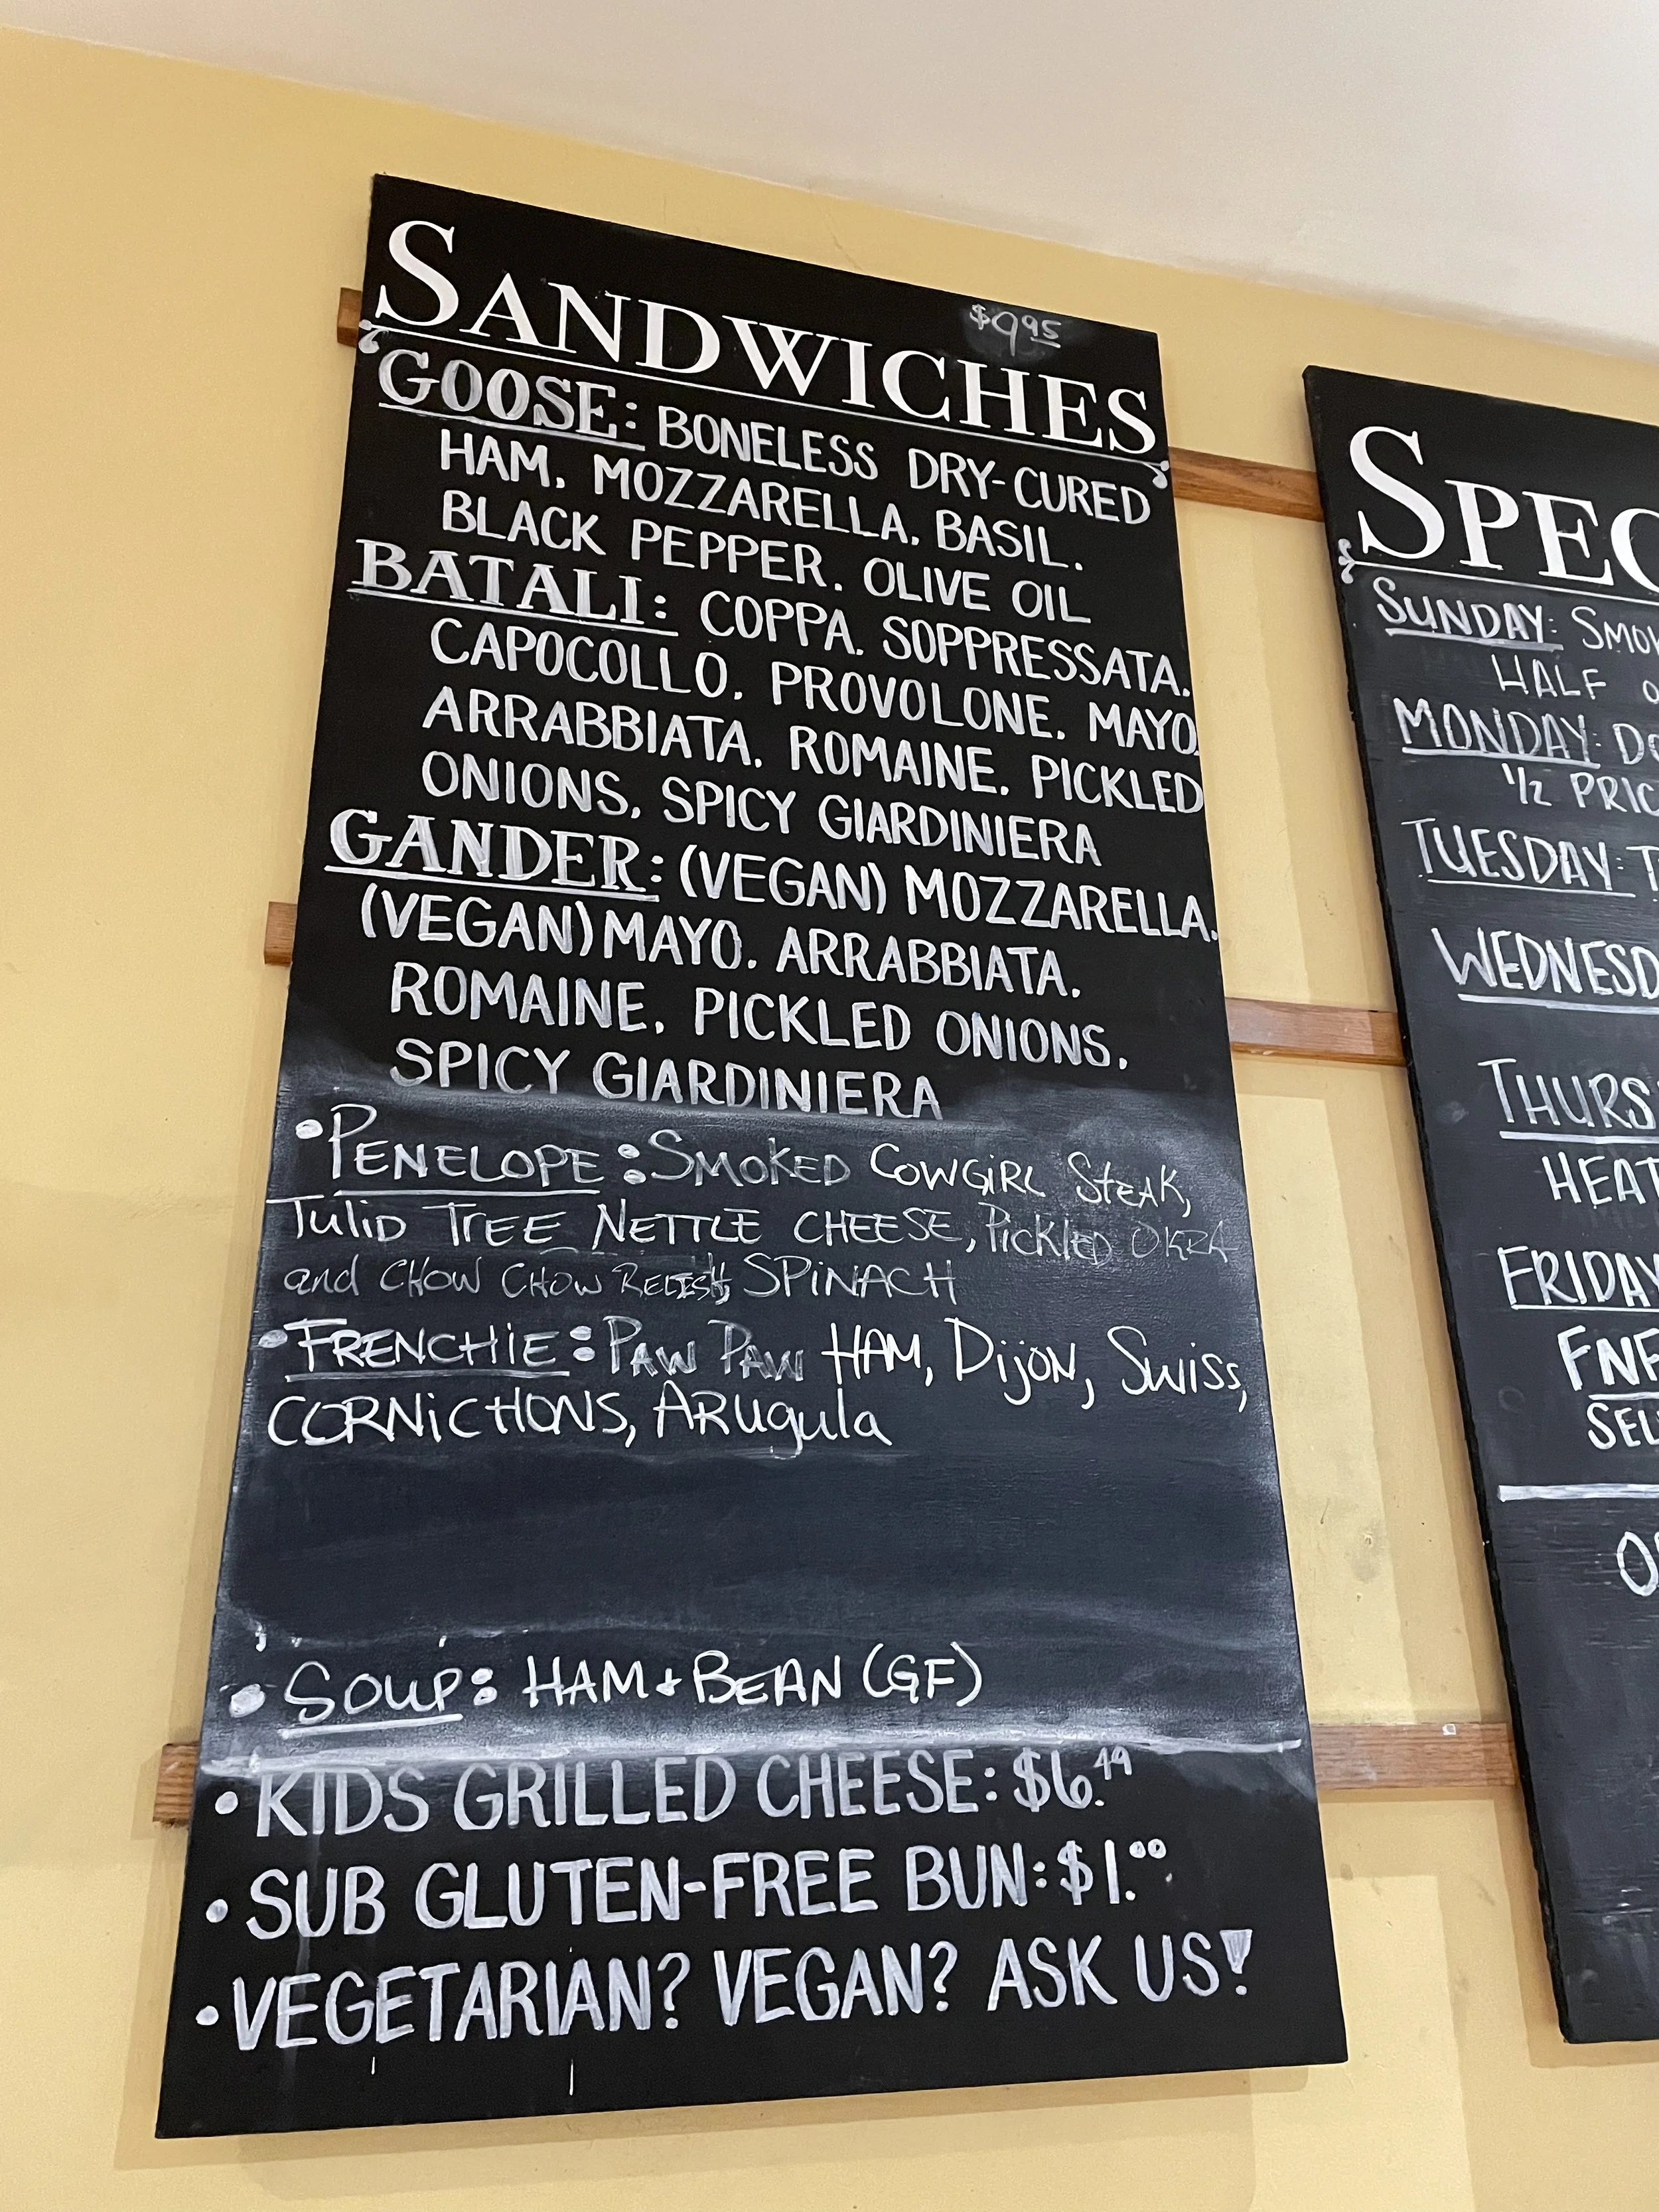 $9.95
SANDWICHES
GOOSE: BONELESS DRY-CURED
HAM, MOZZARELLA, BASIL,
BLACK PEPPER, OLIVE OIL
BATALI: COPPA, SOPPRESSATA,
CAPOCOLLO, PROVOLONE, MAYO,
ARRABBIATA, ROMAINE, PICKLED
ONIONS, SPICY GIARDINIERA
GANDER: (VEGAN) MOZZARELLA,
(VEGAN) MAYO, ARRABBIATA,
ROMAINE, PICKLED ONIONS,
SPICY GIARDINIERA
• PENELOPE: SMOKED COWGIRL STEAK,
TULIP TREE NETTLE CHEESE, PICKLED OKRA
and CHOW CHOW RELISH, SPINACH
• FRENCHIE: PAW PAW HAM, DIJON, SWISS,
CORNICHONS, ARugula
• SOUP: HAM + BEAN (GF)
• KIDS GRILLED CHEESE: $6.49
• SUB GLUTEN-FREE BUN: $1.00
• VEGETARIAN? VEGAN? ASK US!
SPEC
SUNDAY: SMOK
HALF O
MONDAY: DO
1/2 PRIC
TUESDAY: T
WEDNESD
THURS
HEAT
FRIDAY
FNF
SEL